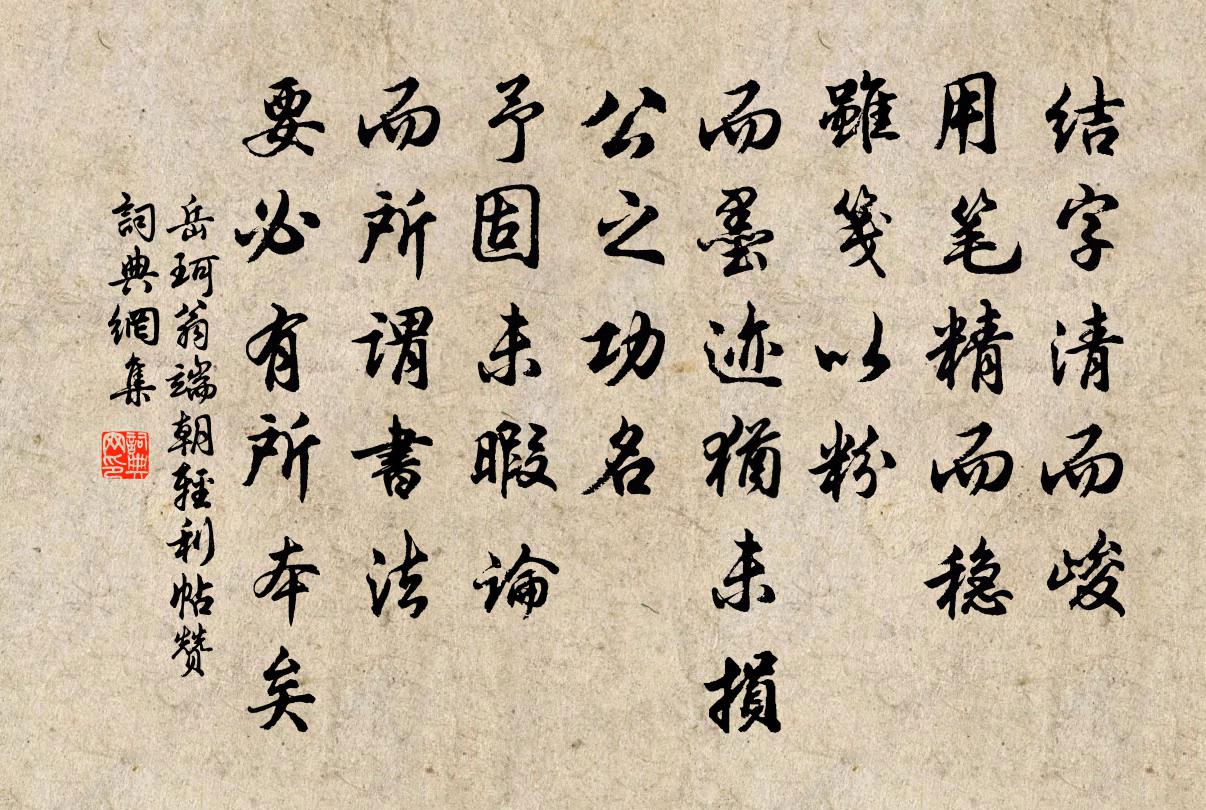 结字清而峻
用笔精而稳
雖箋以粉
而墨迹猶未損
公之功名
予固未暇論
而所謂書法
要必有所本矣
岳珂翁端朝輕利帖赞
詞典網集
詞典网印